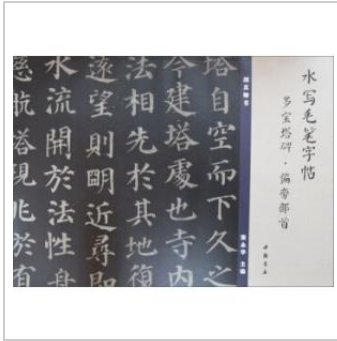 水写毛笔字帖
多宝塔碑·偏旁部首
中国书店
颜真卿书
主编
塔自空而下久之
今建塔處也寺内
法相先於其地復
遠望則明近尋即
水流開於法性舟
慈航塔現兆於有